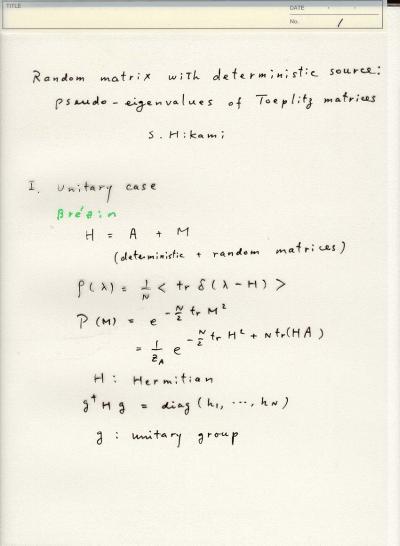 TITLE
DATE
No. 1
Random matrix with deterministic source:
pseudo-eigenvalues of Toeplitz matrices
S. Hikami
I. Unitary case
Brézin
H = A + M
(deterministic + random matrices)
ρ(λ) = 1/N < tr δ(λ - H) >
P(M) = e^{-N/2 tr M²}
= 1/Z_A e^{-N/2 tr H² + N tr(HA)}
H : Hermitian
g† H g = diag (h₁, ..., h_N)
g : unitary group